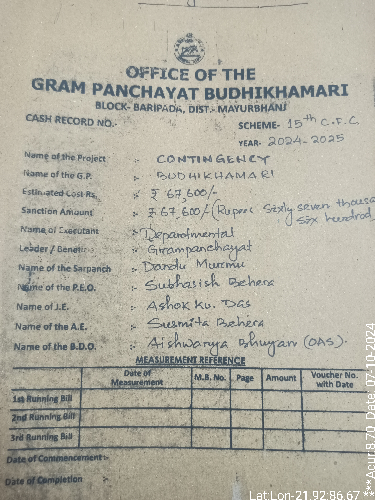 OFFICE OF THE
GRAM PANCHAYAT BUDHIKHAMARI
BLOCK- BARIPADA, DIST.- MAYURBHANJ
CASH RECORD NO.-
SCHEME- 15th C.F.C
YEAR- 2024-2025
Name of the Project :- CONTINGENCY
Name of the G.P. :- BUDHIKHAMARI
Estimated Cost Rs. :- ₹ 67,600/-
Sanction Amount :- ₹ 67,600/- (Rupees Sixty seven thousa
six hundred)
Name of Executant :- Departmental
Leader / Benefic :- Grampanchayat
Name of the Sarpanch :- Dandu Murmu
Name of the P.E.O. :- Subhasish Behera
Name of J.E. :- Ashok Ku. Das
Name of the A.E. :- Susmita Behera
Name of the B.D.O. :- Aishwarya Bhuyan (OAS).
MEASUREMENT REFERENCE
Date of Measurement M.B. No. Page Amount Voucher No. with Date
1st Running Bill
2nd Running Bill
3rd Running Bill
Date of Commencement:-
Date of Completion
Lat:Lon-21.92:86.67
***Acur:8.70 Date: 07-10-2024 ***